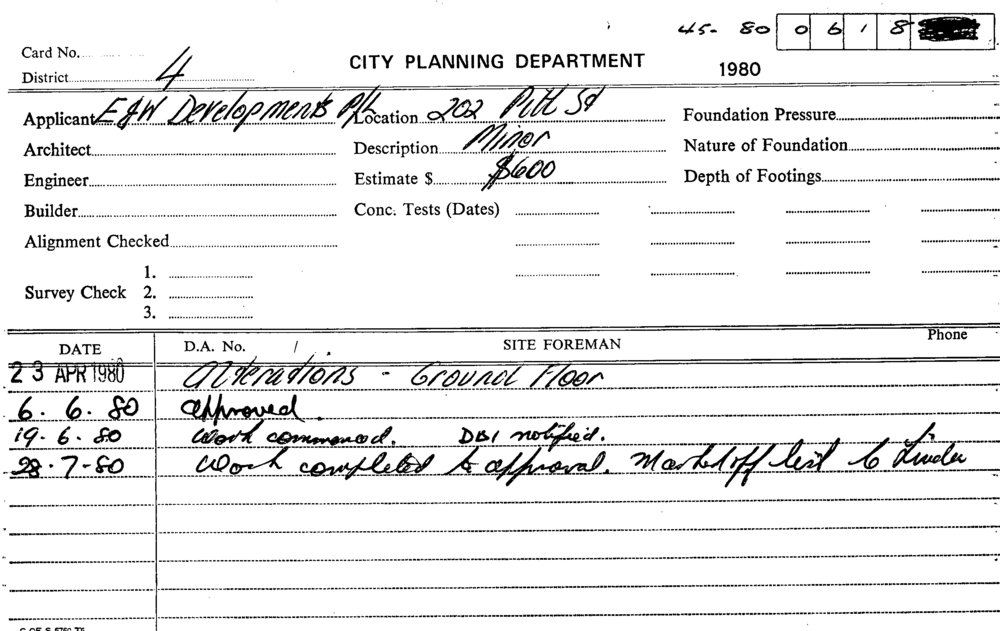 45- 80 0 6 1 8
Card No.
CITY PLANNING DEPARTMENT 1980
District 4
Applicant E & W Developments P/L Location 202 Pitt St Foundation Pressure
Architect Description Minor Nature of Foundation
Engineer Estimate $ $600 Depth of Footings
Builder Conc. Tests (Dates)
Alignment Checked
1.
Survey Check 2.
3.
DATE D.A. No. SITE FOREMAN Phone
23 APR 1980 Alterations - Ground Floor
6. 6. 80 approved.
19. 6. 80 Work commenced. DBI notified.
28-7-80 Work completed to approval. Marked off list to